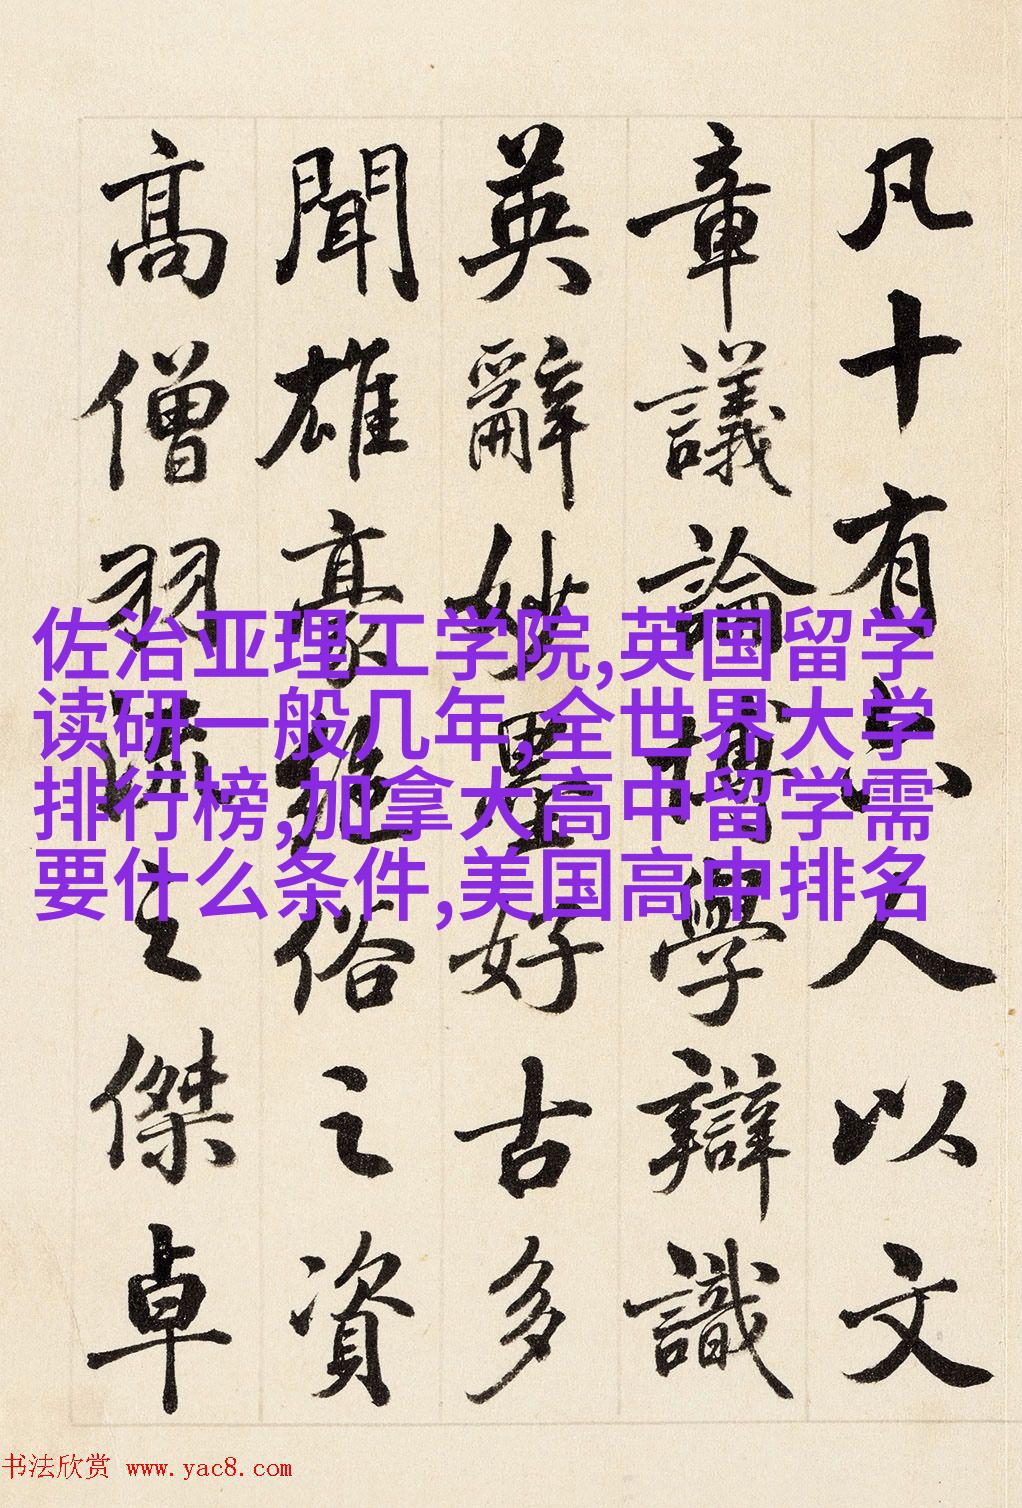 凡十有六人以文
章議論博學辯識
英辭妙墨好古多
聞雄豪絕俗之資
髙僧羽流之傑卓
佐治亚理工学院,英国留学
读研一般几年,全世界大学
排行榜,加拿大高中留学需
要什么条件,美国高中排名
书法欣赏 www.yac8.com